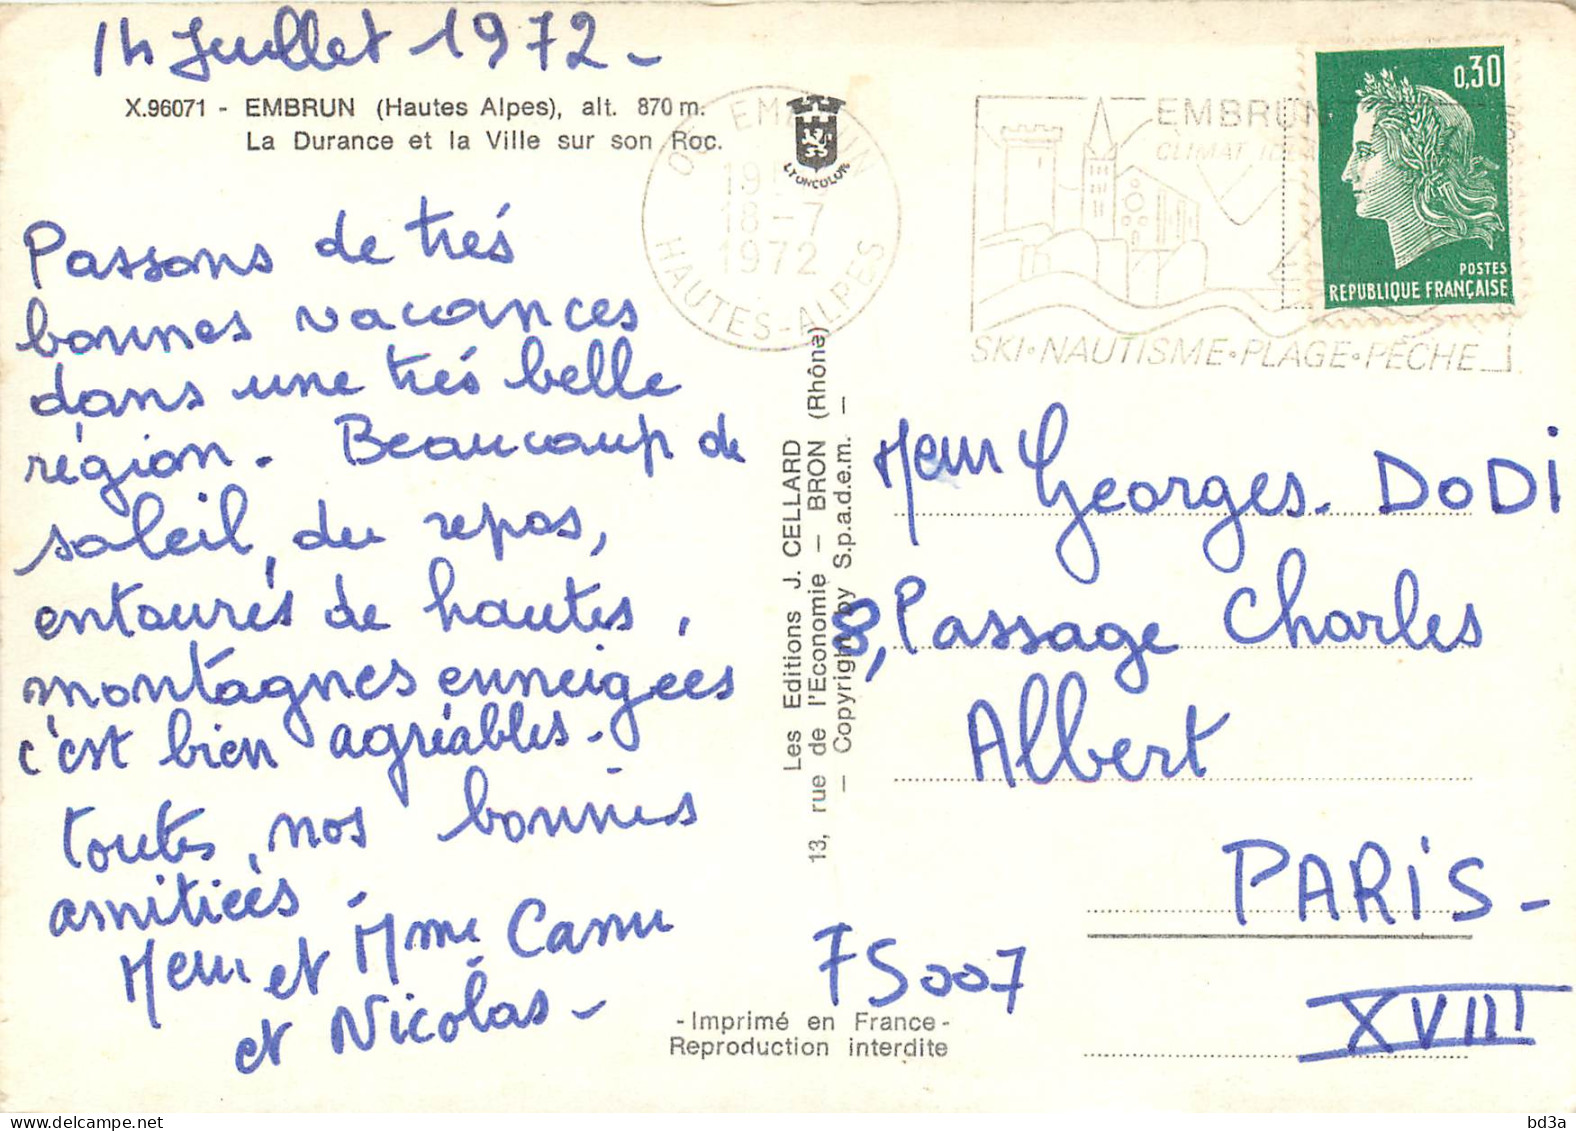 14 Juillet 1972 -
X.96071 - EMBRUN (Hautes Alpes), alt. 870 m.
La Durance et la Ville sur son Roc.
Passons de très
bonnes vacances
dans une très belle
région. Beaucoup de
soleil, du repos,
entourés de hautes,
montagnes enneigées
c'est bien agréables.
toutes, nos bonnes
amitiées.
Meur et Mme Canu
et Nicolas -
LYONCOLOR
EMBRUN
18-7
1972
HAUTES-ALPES
EMBRUN
CLIMAT
SKI•NAUTISME•PLAGE•PÊCHE
0,30
POSTES
REPUBLIQUE FRANÇAISE
Les Editions J. CELLARD
13, rue de l'Economie - BRON (Rhône)
- Copyright by S.p.a.d.e.m. -
Meur Georges. DODI
8, Passage Charles
Albert
PARIS -
75007
XVIII
- Imprimé en France -
Reproduction interdite
bd3a